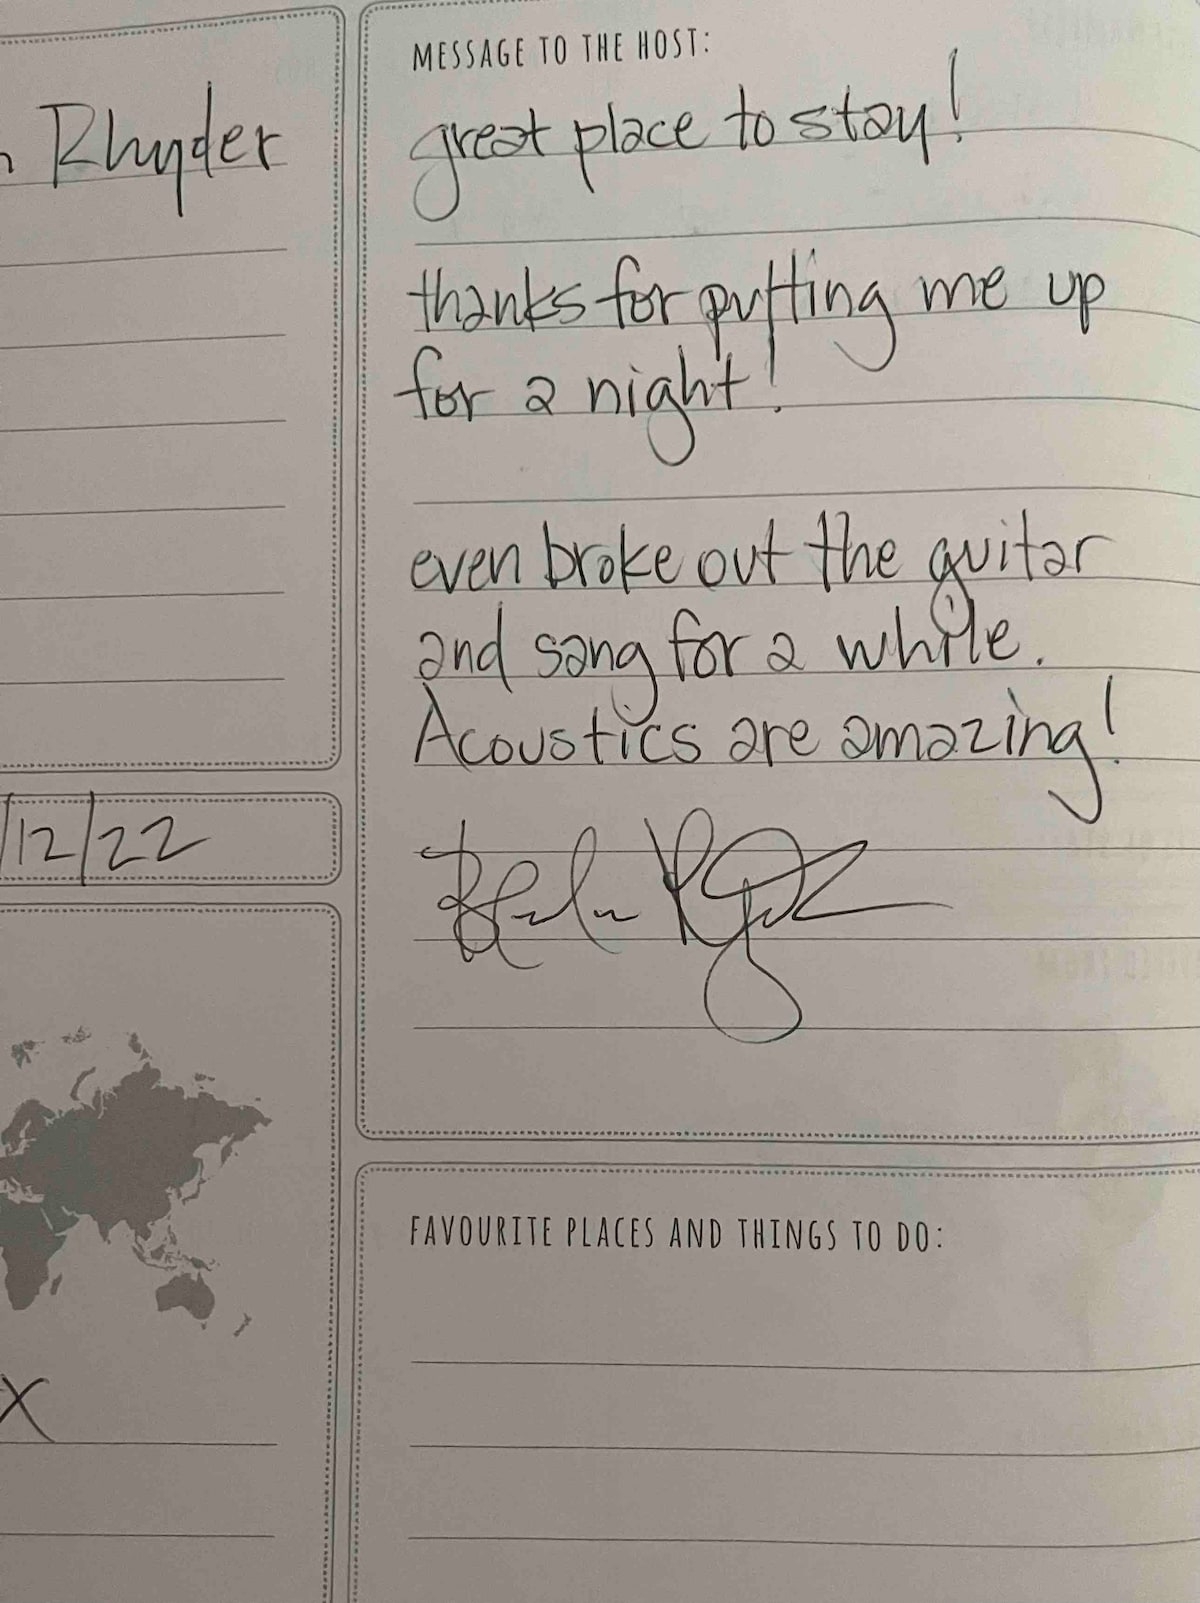 Rhyder
/12/22
X
MESSAGE TO THE HOST:
great place to stay!
thanks for putting me up
for a night!
even broke out the guitar
and sang for a while.
Acoustics are amazing!
FAVOURITE PLACES AND THINGS TO DO: